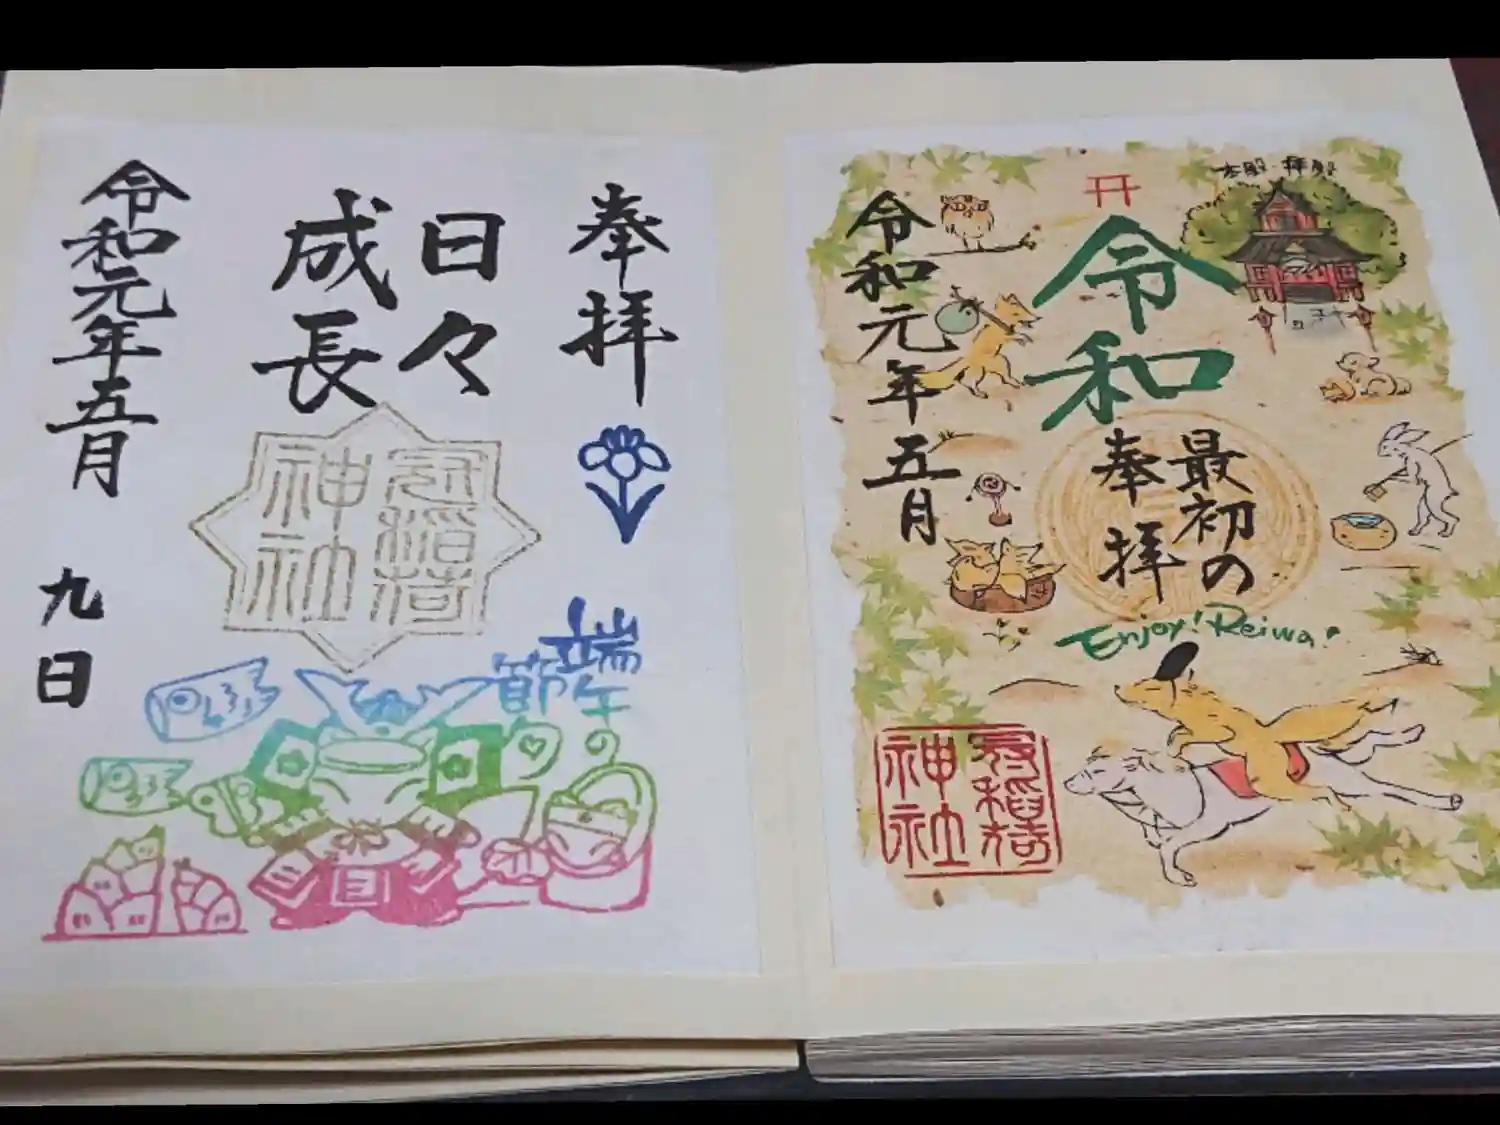 奉拝
日々
成長
端午
節句
令和元年五月
九日
神社
本殿・拝殿
令和
最初の
奉拝
Enjoy! Reiwa!
令和元年五月
稲荷
神社